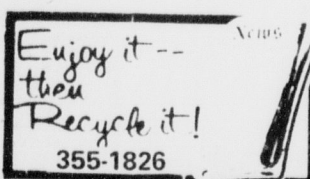 News
Enjoy it --
then
Recycle it!
355-1826